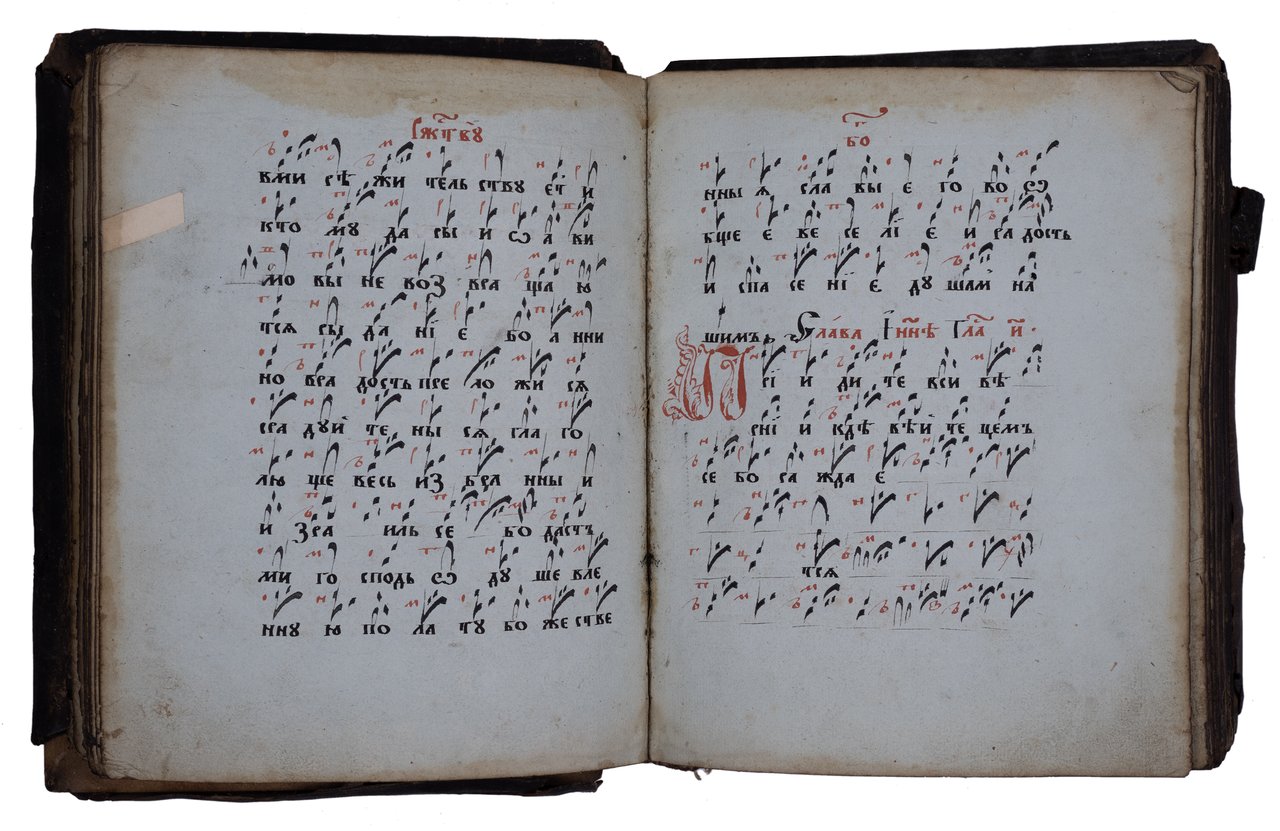 Рж҃тв꙽ꙋ
вми рѣ жи тель ствꙋ єт и
кто мꙋ да ры и ѡ а ви
мо вы не воз вра ща ю
тся ры да нї є бо а нни
но вра дость пре ло жи ся
сра дꙋй те ны ся гла го
лю ще весь из бра нны и
и зра иль се бо дастъ
ми го сподь ѡ дꙋ ше вле
ннꙋ ю по ла тꙋ бо же стве
бо҃
нны я сла вы є го во ѡ
бще є ве се лї є и ра дость
и спа се нї є дꙋ шам на
шимъ, Сла́ва І҆нн҃ѣ Гла҃ и҃·
Прї и ди те вси вѣ
рнї и кдѣ вѣй те цемъ
се бо ра жда є
тся